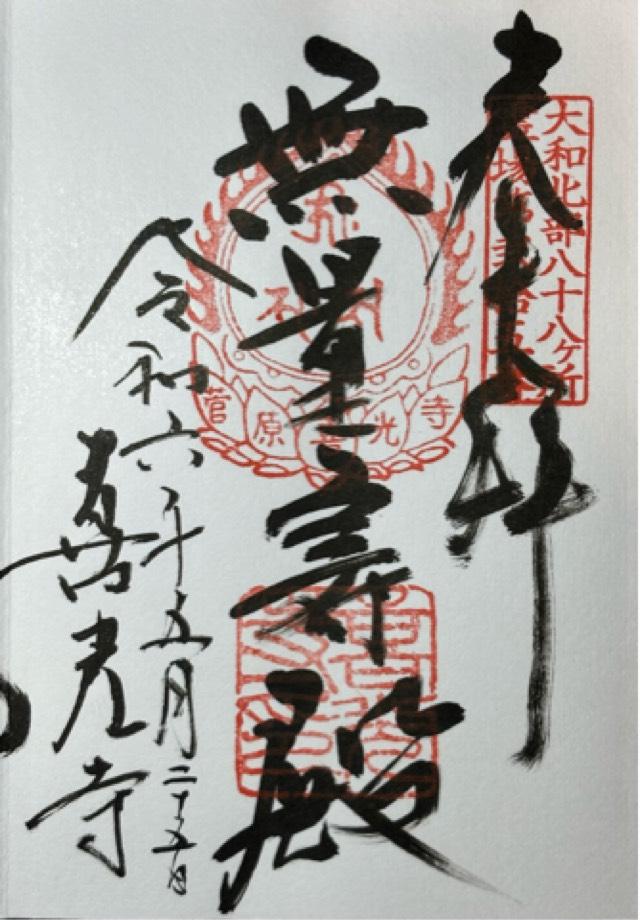 奉拝
大和北部八十八ヶ所
霊場第
無量寿殿
菅原喜光寺
令和六年五月二十五日
喜光寺